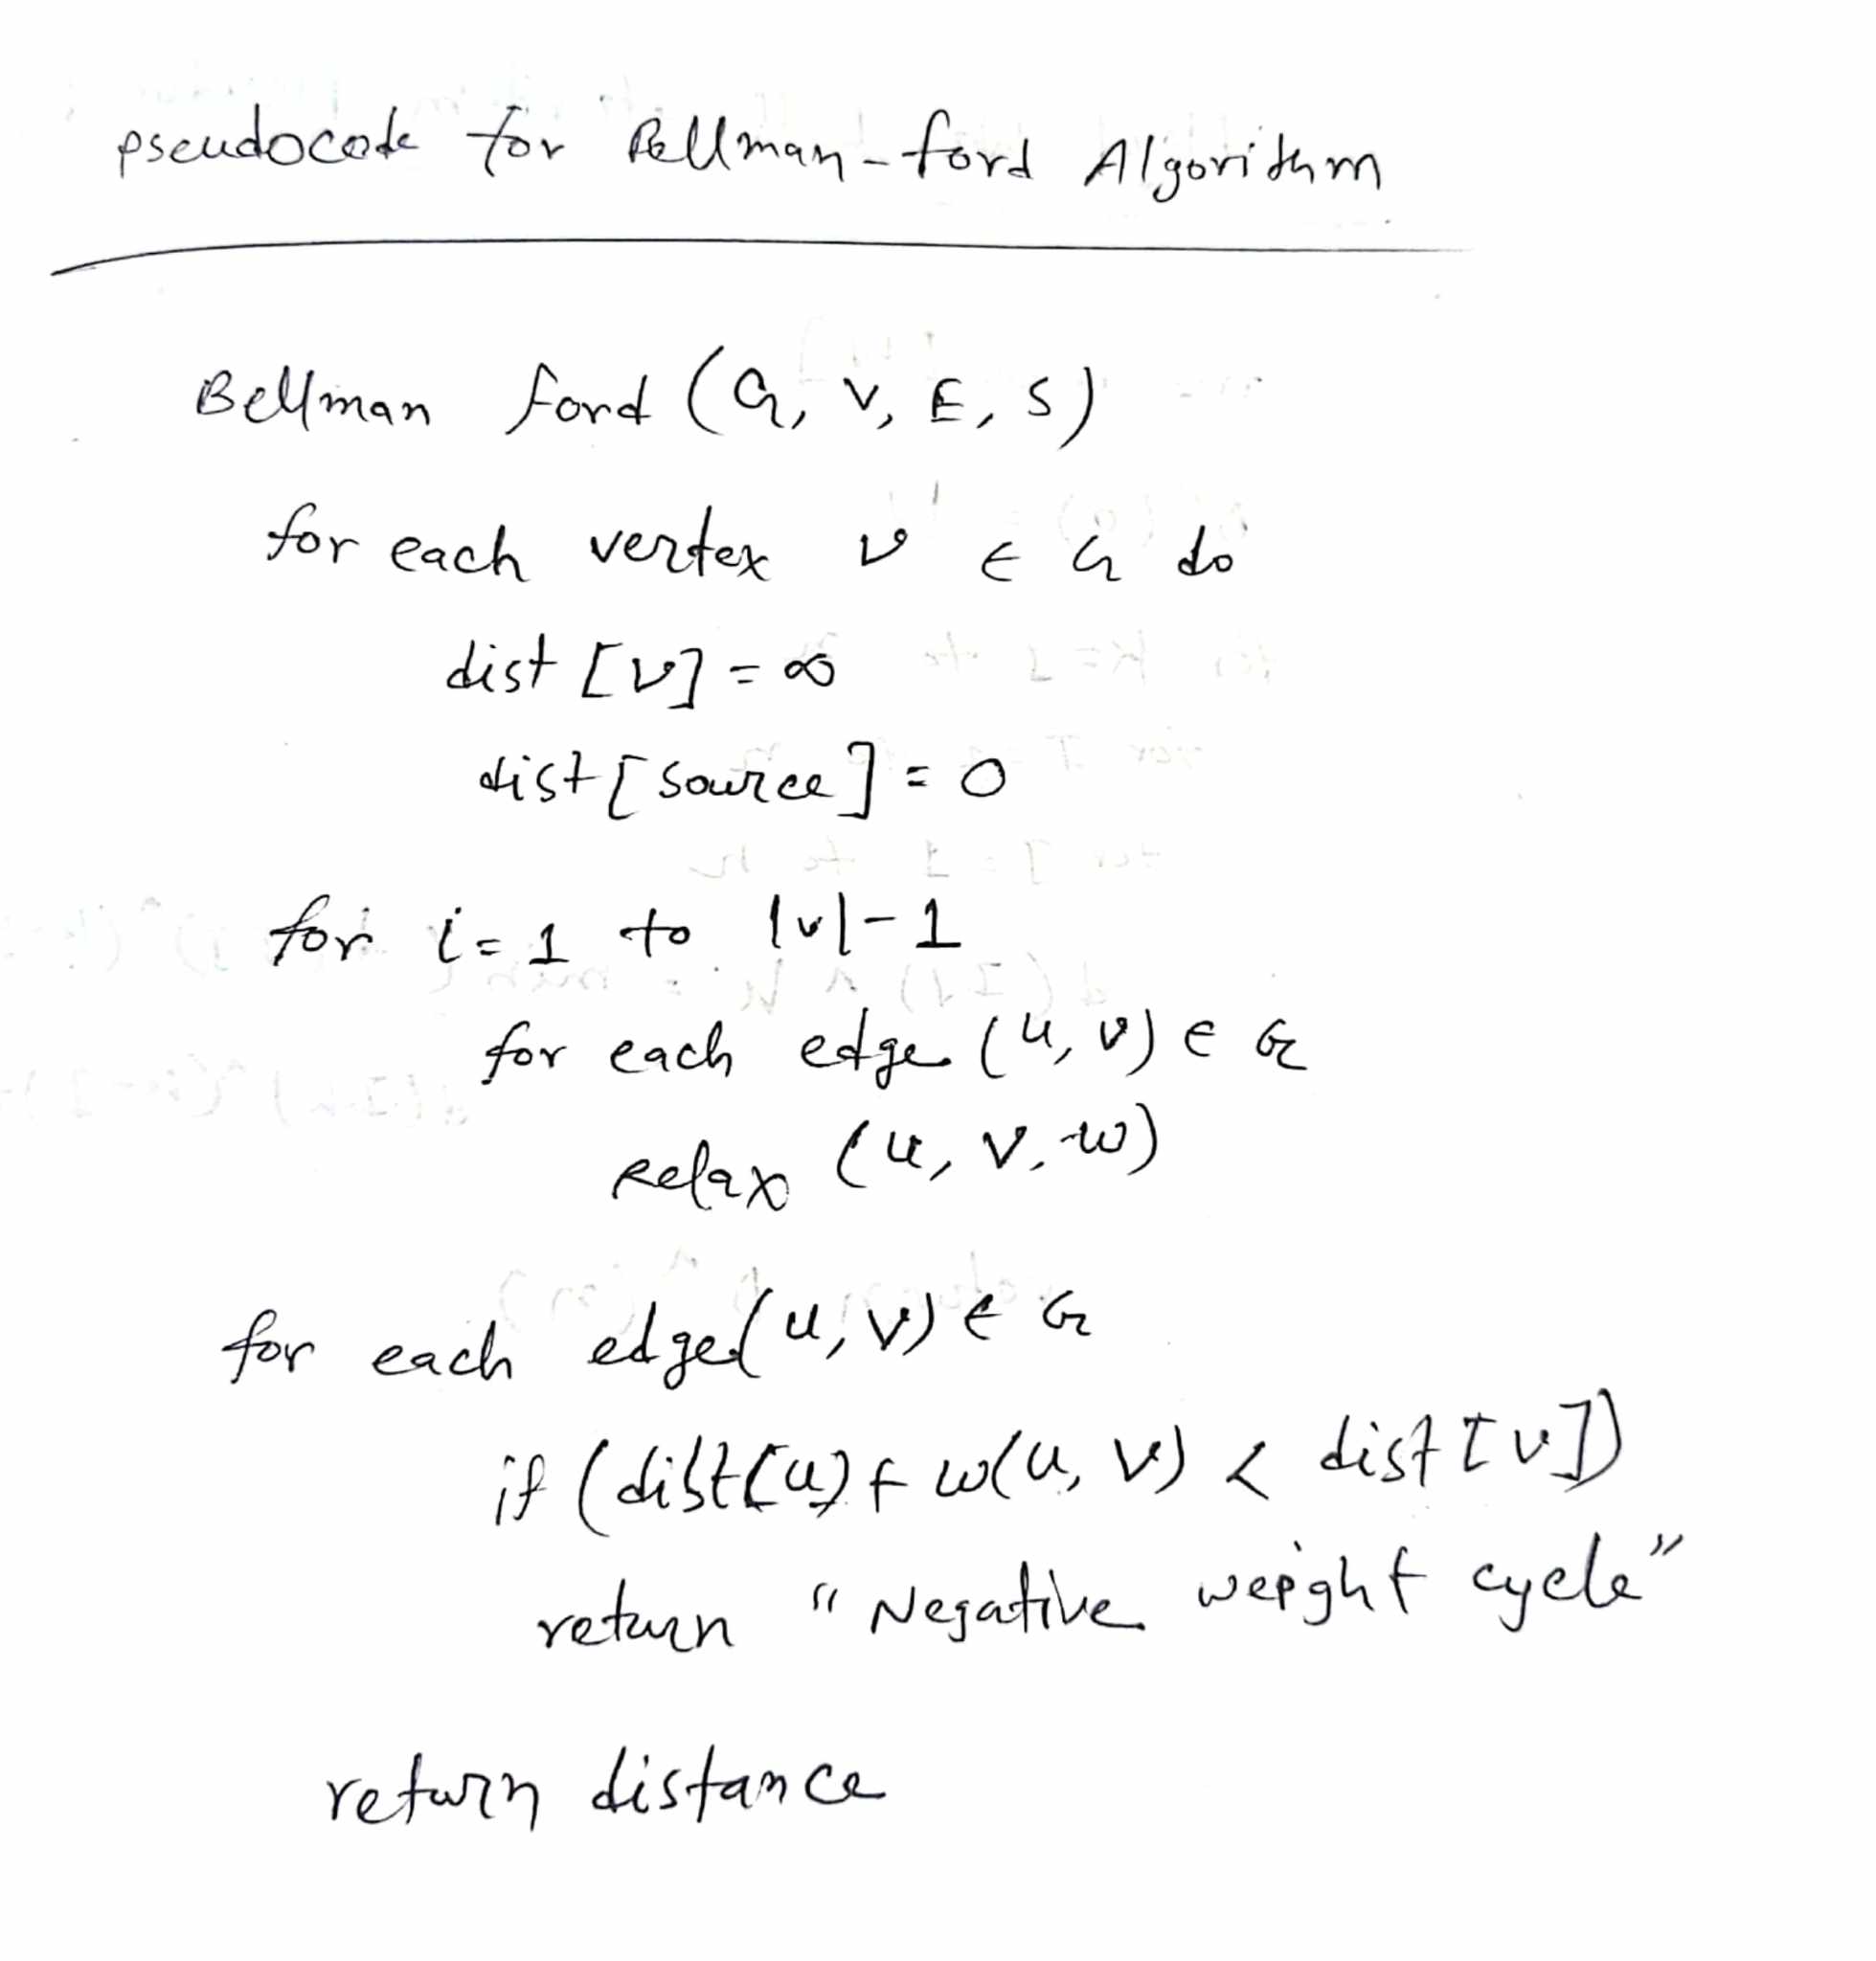 pseudocode for Bellman-ford Algorithm
Bellman ford (G, V, E, S)
for each vertex v ∈ G do
dist [v] = ∞
dist [source] = 0
for i = 1 to |v| - 1
for each edge (u, v) ∈ G
Relax (u, v, w)
for each edge (u, v) ∈ G
if (dist[u] + w(u, v) < dist [v])
return "Negative weight cycle"
return distance